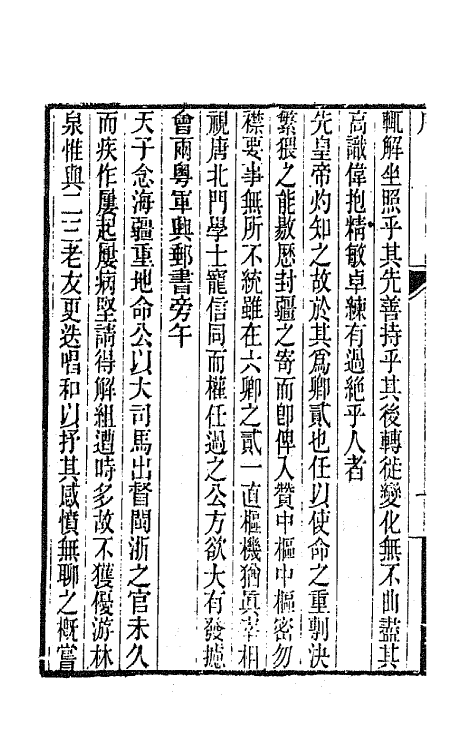 輒解坐照乎其先善持乎其後轉徙變化無不曲盡其
高識偉抱精敏卓練有過絕乎人者
先皇帝灼知之故於其爲卿貳也任以使命之重剸決
繁猥之能敭歷封疆之寄而卽俾入贊中樞中樞密勿
襟要事無所不統雖在六卿之貳一直樞機猶眞宰相
視唐北門學士寵信同而權任過之公方欲大有發攄
會兩粵軍興郵書旁午
天子念海疆重地命公以大司馬出督閩浙之官未久
而疾作屢起屢病堅請得解組遭時多故不獲優游林
泉惟與二三老友更迭唱和以抒其感憤無聊之概嘗